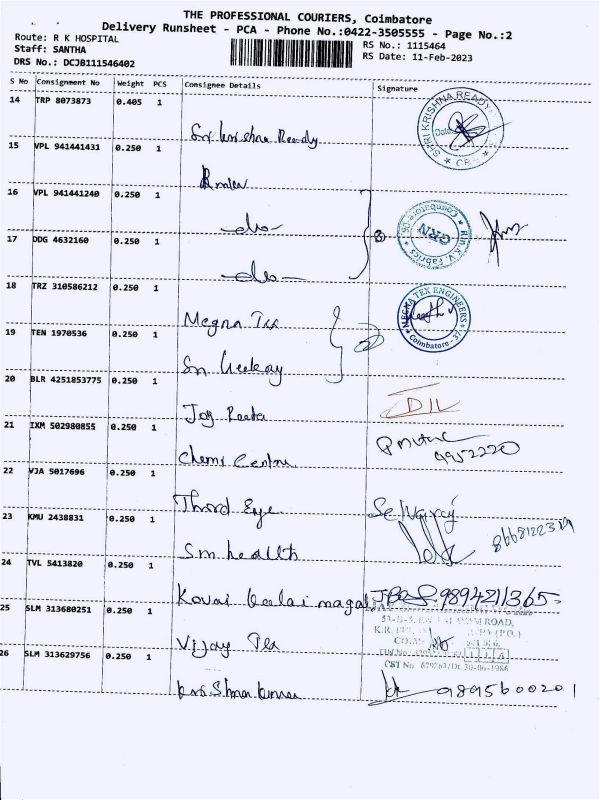 THE PROFESSIONAL COURIERS, Coimbatore
Delivery Runsheet - PCA - Phone No.:0422-3505555 - Page No.:2
Route: R K HOSPITAL
RS No.: 1115464
Staff: SANTHA
RS Date: 11-Feb-2023
DRS No.: DCJB111546402
S No Consignment No Weight PCS Consignee Details Signature
14 TRP 8073873 0.405 1
Sri krishna Ready
SHRI KRISHNA READY
15 VPL 941441431 0.250 1
16 VPL 941441240 0.250 1
-do-
K.V. Fabrics Coimbatore GRN
17 DDG 4632160 0.250 1
-do-
18 TRZ 310586212 0.250 1
Megna Tex
MEGNA TEX ENGINEERS Coimbatore - 37
19 TEN 1970536 0.250 1
Sri
20 BLR 4251853775 0.250 1
Joy
21 IXM 502980855 0.250 1
Chemi Centre
9952220
22 VJA 5017696 0.250 1
Third Eye
Selvaraj
23 KMU 2438831 0.250 1
Sm health
24 TVL 5413820 0.250 1
Kovai kalai magal
9894211365
25 SLM 313680251 0.250 1
Vijay Tex
ROAD,
K.R.
CST No 30-06-1986
26 SLM 313629756 0.250 1
krishna kumar
9895600201